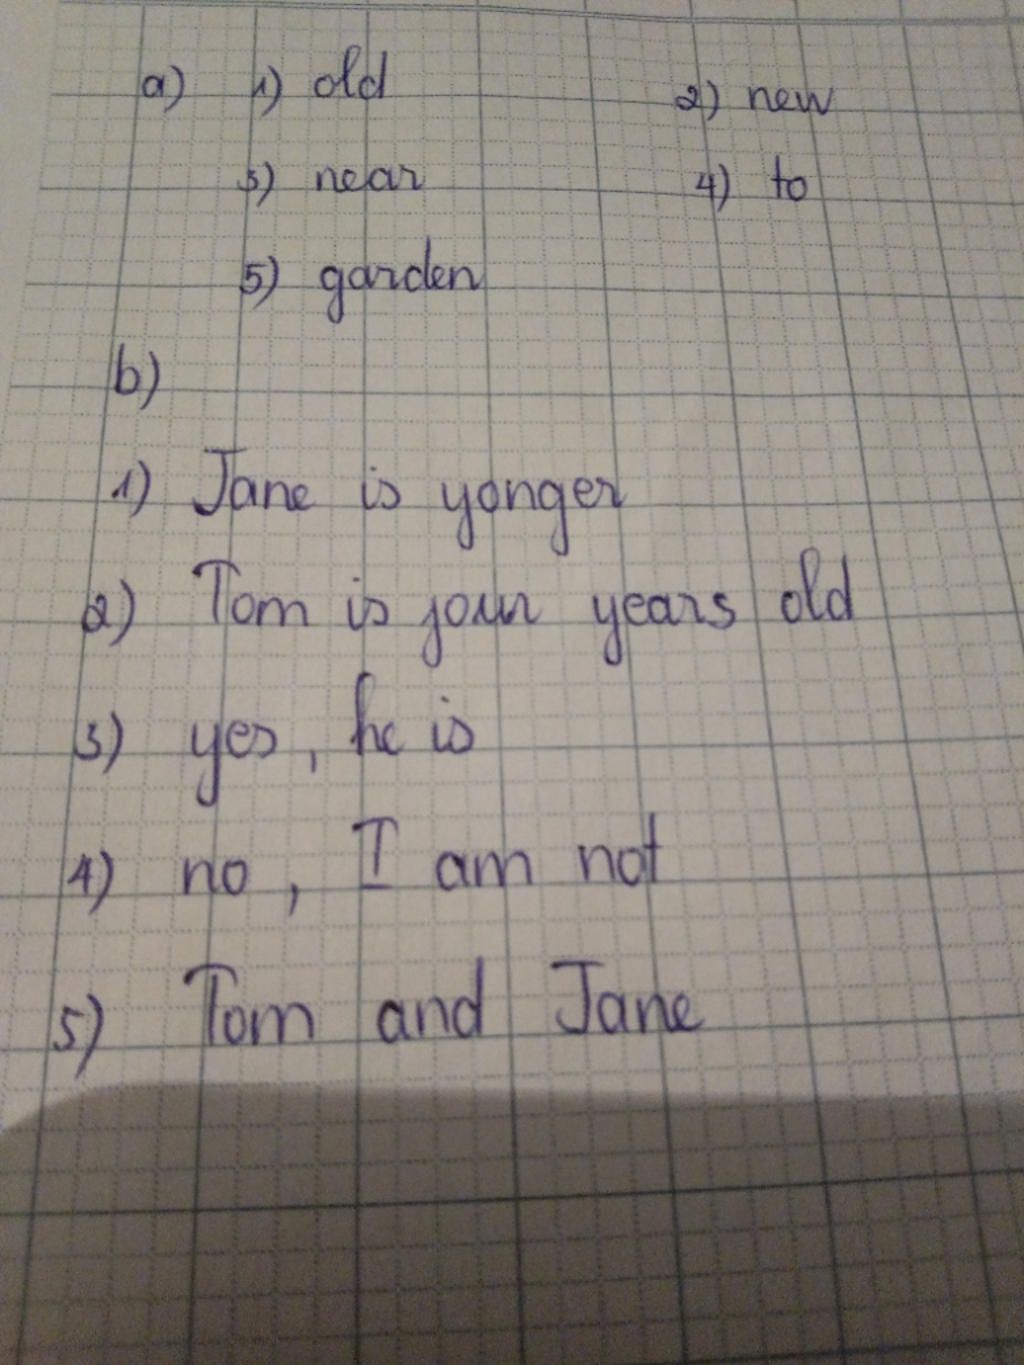 a) 1) old 2) new
3) near 4) to
5) garden
b)
1) Jane is yonger
2) Tom is four years old
3) yes, he is
4) no, I am not
5) Tom and Jane